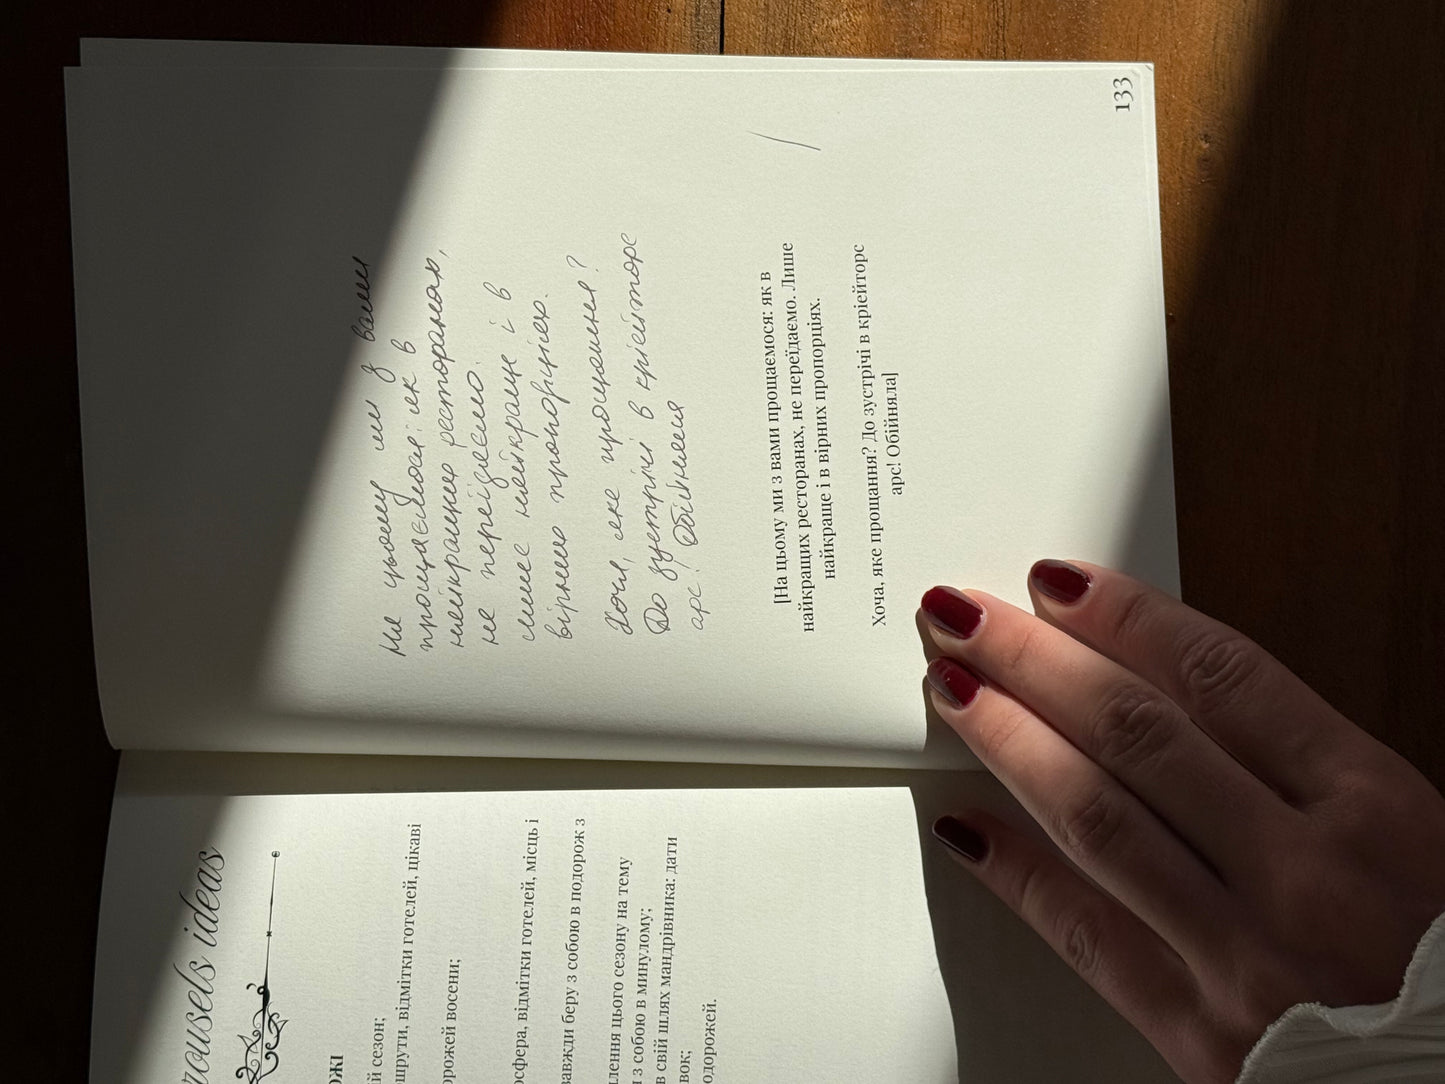 rousels ideas
ОЖІ
ій сезон;
шрути, відмітки готелей, цікаві
орожей восени;
осфера, відмітки готелей, місць і
завжди беру з собою в подорож з
лення цього сезону на тему
и з собою в минулому;
в свій шлях мандрівника: дати
вок;
одорожей.
На цьому ми з вами
прощаємося: як в
найкращих ресторанах,
не переїдаємо.
лише найкраще і в
вірних пропорціях.
Хоча, яке прощання?
До зустрічі в крієйторс
арс! Обійняла
[На цьому ми з вами прощаємося: як в
найкращих ресторанах, не переїдаємо. Лише
найкраще і в вірних пропорціях.
Хоча, яке прощання? До зустрічі в крієйторс
арс! Обійняла]
133